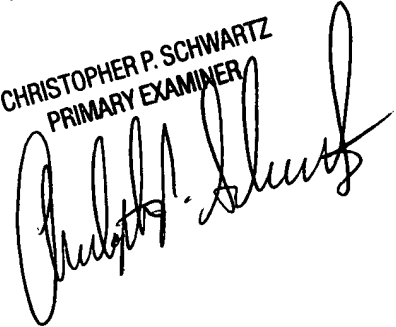 CHRISTOPHER P. SCHWARTZ
PRIMARY EXAMINER
Christopher P. Schwartz